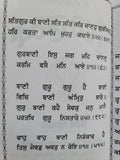 ਸਤਿਗੁਰ ਕੀ ਬਾਣੀ ਸਤਿ ਸਤਿ ਕਰਿ ਜਾਣਹੁ ਗੁਰਸਿਖਹੁ
ਹਰਿ ਕਰਤਾ ਆਪਿ ਮੁਹਹੁ ਕਢਾਏ
ਗੁਰਬਾਣੀ ਇਸੁ ਜਗ ਮਹਿ ਚਾਨਣੁ
ਕਰਮਿ ਵਸੈ ਮਨਿ ਆਏ
ਬਾਣੀ ਗੁਰੂ ਗੁਰੂ ਹੈ ਬਾਣੀ
ਵਿਚਿ ਬਾਣੀ ਅੰਮ੍ਰਿਤੁ ਸਾਰੇ
ਗੁਰੁ ਬਾਣੀ ਕਹੈ ਸੇਵਕੁ ਜਨੁ ਮਾਨੈ
ਪਰਤਖਿ ਗੁਰੂ ਨਿਸਤਾਰੇ
ਵਾਹੁ ਵਾਹੁ ਬਾਣੀ ਨਿਰੰਕਾਰ ਹੈ
ਤਿਸੁ ਜੇਵਡੁ ਅਵਰੁ ਨ ਕੋਇ